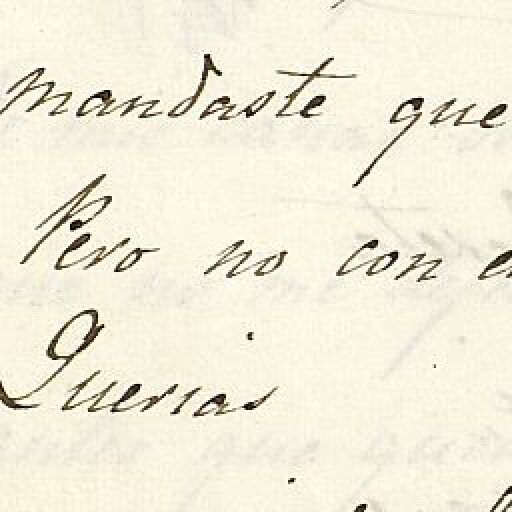 mandaste que
Pero no con e
Querias